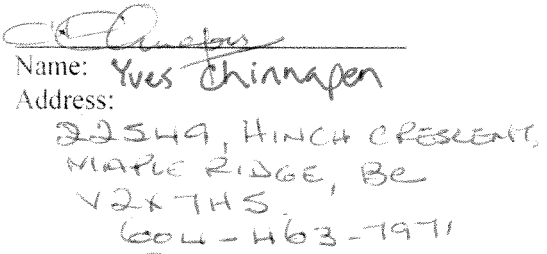 Name: Yves Chinnapen
Address:
22549, HINCH CRESCENT,
MAPLE RIDGE, BC
V2X 7H5
604-463-7971